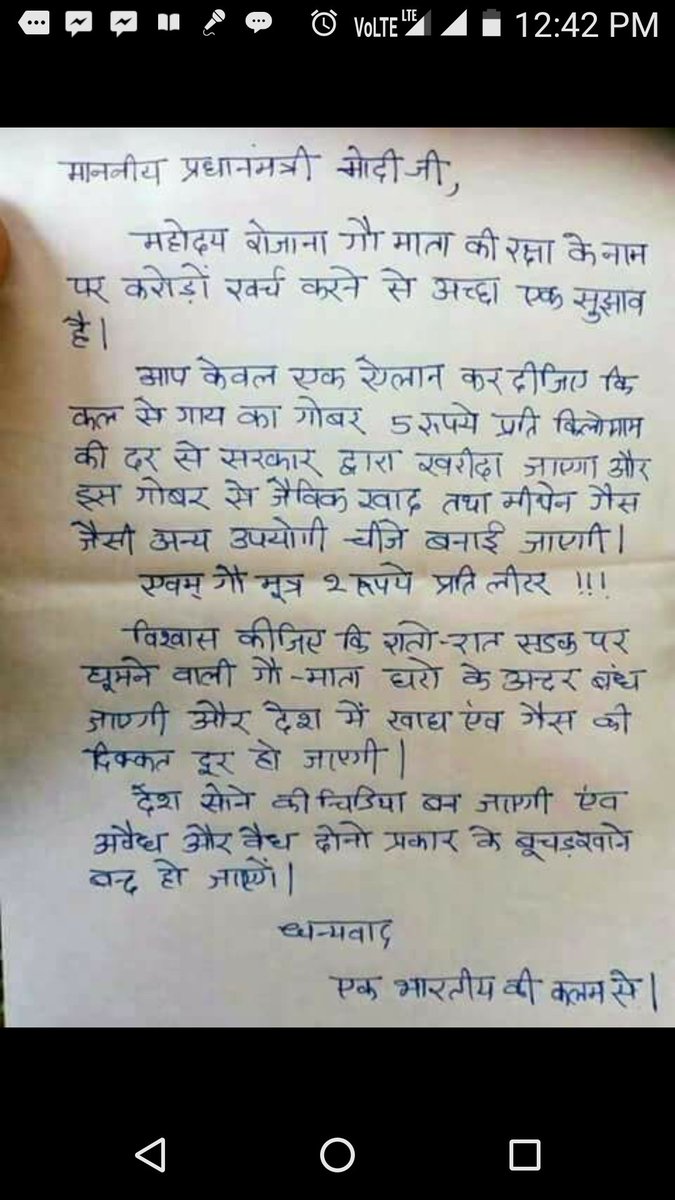 VoLTE LTE 12:42 PM
माननीय प्रधानमंत्री मोदी जी,
महोदय रोजाना गौ माता की रक्षा के नाम
पर करोड़ों खर्च करने से अच्छा एक सुझाव
है।
आप केवल एक ऐलान कर दीजिए कि
कल से गाय का गोबर 5 रूपये प्रति किलोग्राम
की दर से सरकार द्वारा खरीदा जाएगा और
इस गोबर से जैविक खाद तथा मीथेन गैस
जैसी अन्य उपयोगी चीजे बनाई जाएगी।
एवम् गौ मूत्र 2 रूपये प्रति लीटर !!!
विश्वास कीजिए कि रातो-रात सडक पर
घूमने वाली गौ-माता घरो के अन्दर बंध
जाएगी और देश में खाद्य एंव गैस की
दिक्कत दूर हो जाएगी।
देश सोने की चिडिया बन जाएगी एंव
अवैध और वैध दोनो प्रकार के बूचड़खाने
बन्द हो जाएगें।
धन्यवाद
एक भारतीय की कलम से।